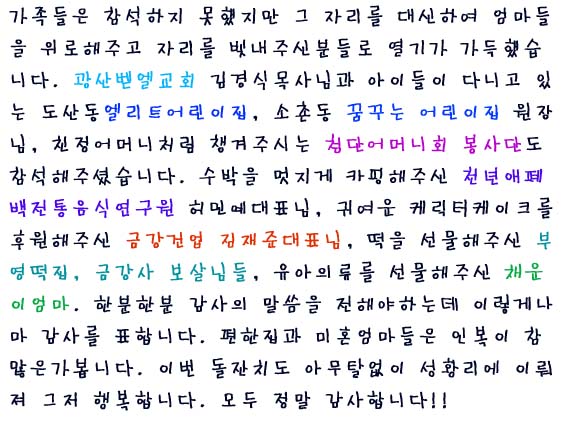 가족들은 참석하지 못했지만 그 자리를 대신하여 엄마들
을 위로해주고 자리를 빛내주신분들로 열기가 가득했습
니다. 광산벧엘교회 김경식목사님과 아이들이 다니고 있
는 도산동엘리트어린이집, 소촌동 꿈꾸는 어린이집 원장
님, 친정어머니처럼 챙겨주시는 첨단어머니회 봉사단도
참석해주셨습니다. 수박을 멋지게 카핑해주신 천년애폐
백전통음식연구원 허민예대표님, 귀여운 케릭터케이크를
후원해주신 금강건업 김재준대표님, 떡을 선물해주신 부
영떡집, 금강사 보살님들, 유아의류를 선물해주신 채운
이엄마. 한분한분 감사의 말씀을 전해야하는데 이렇게나
마 감사를 표합니다. 편한집과 미혼엄마들은 인복이 참
많은가봅니다. 이번 돌잔치도 아무탈없이 성황리에 이뤄
져 그저 행복합니다. 모두 정말 감사합니다!!